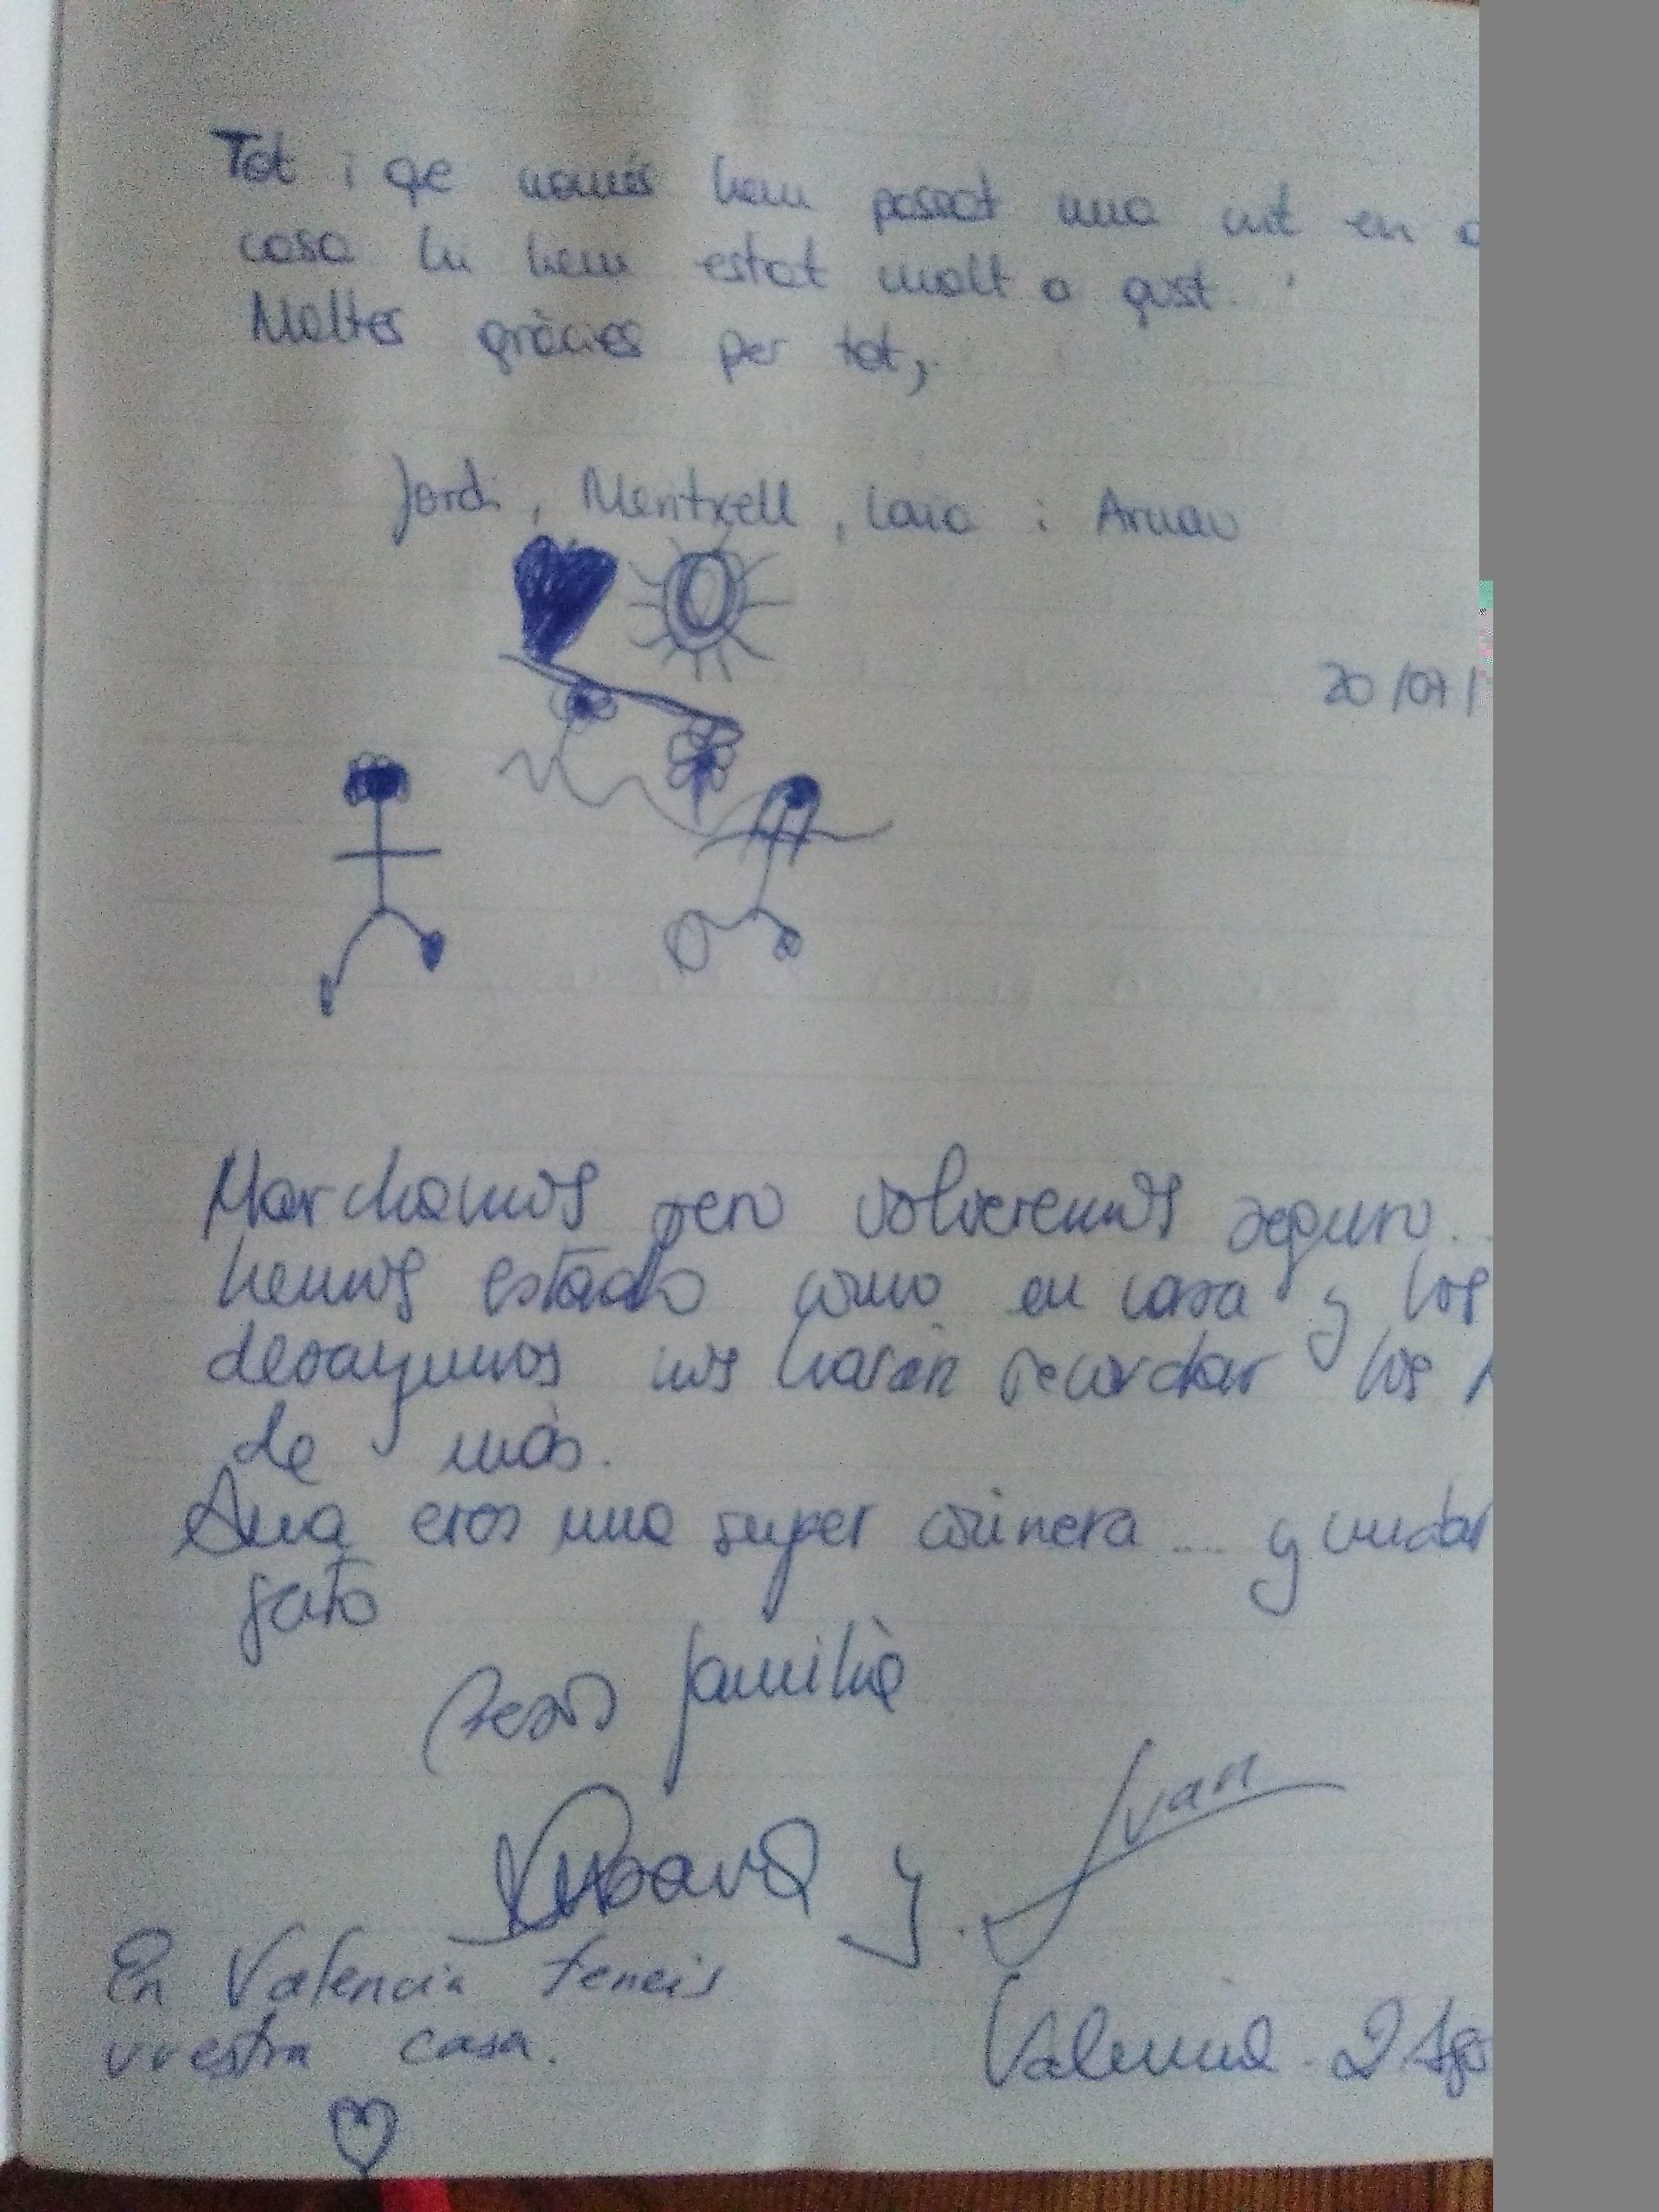 Tot i qe només hem passat una nit en
casa hi hem estat molt a gust.
Moltes gràcies per tot,
Jordi, Meritxell, Laia i Arnau
20/07/
Marchamos pero volveremos seguro...
hemos estado como en casa y los
desayunos nos harán recordar los
de más.
Ana eres una super cocinera.... y
Besos familia
y Ivan
En Valencia teneis
vuestra casa.
Valencia 2 Ago